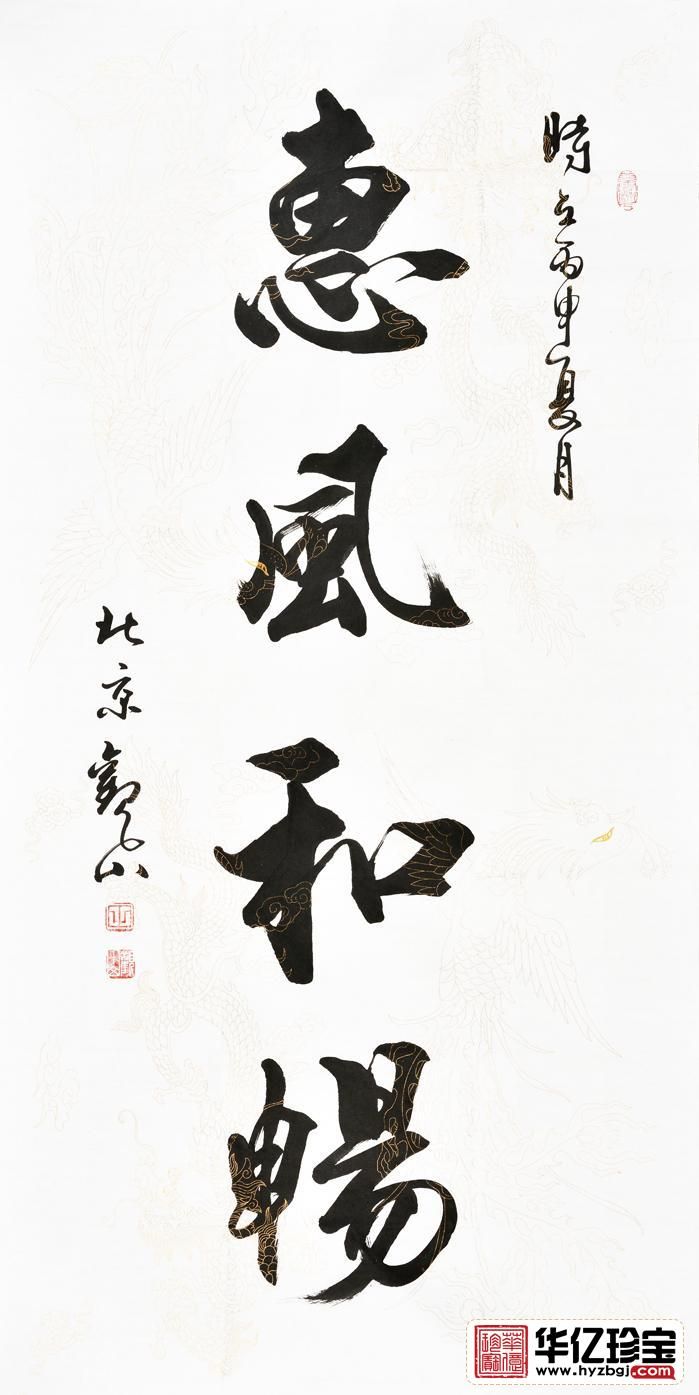 時在丙申夏月
惠風和暢
北京觀山
华亿珍宝
www.hyzbgj.com